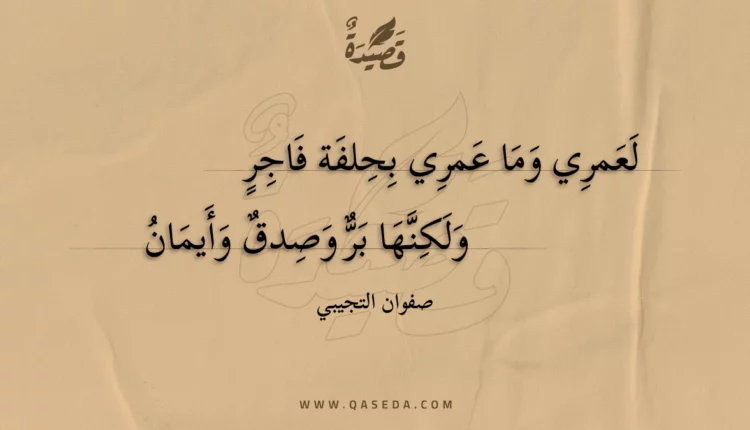 قَصِيدَةٌ
لَعَمرِي وَمَا عَمرِي بِحِلفَة فَاجِرٍ
وَلَكِنَّهَا بَرٌّ وَصِدقٌ وَأَيمَانُ
صفوان التجيبي
WWW.QASEDA.COM